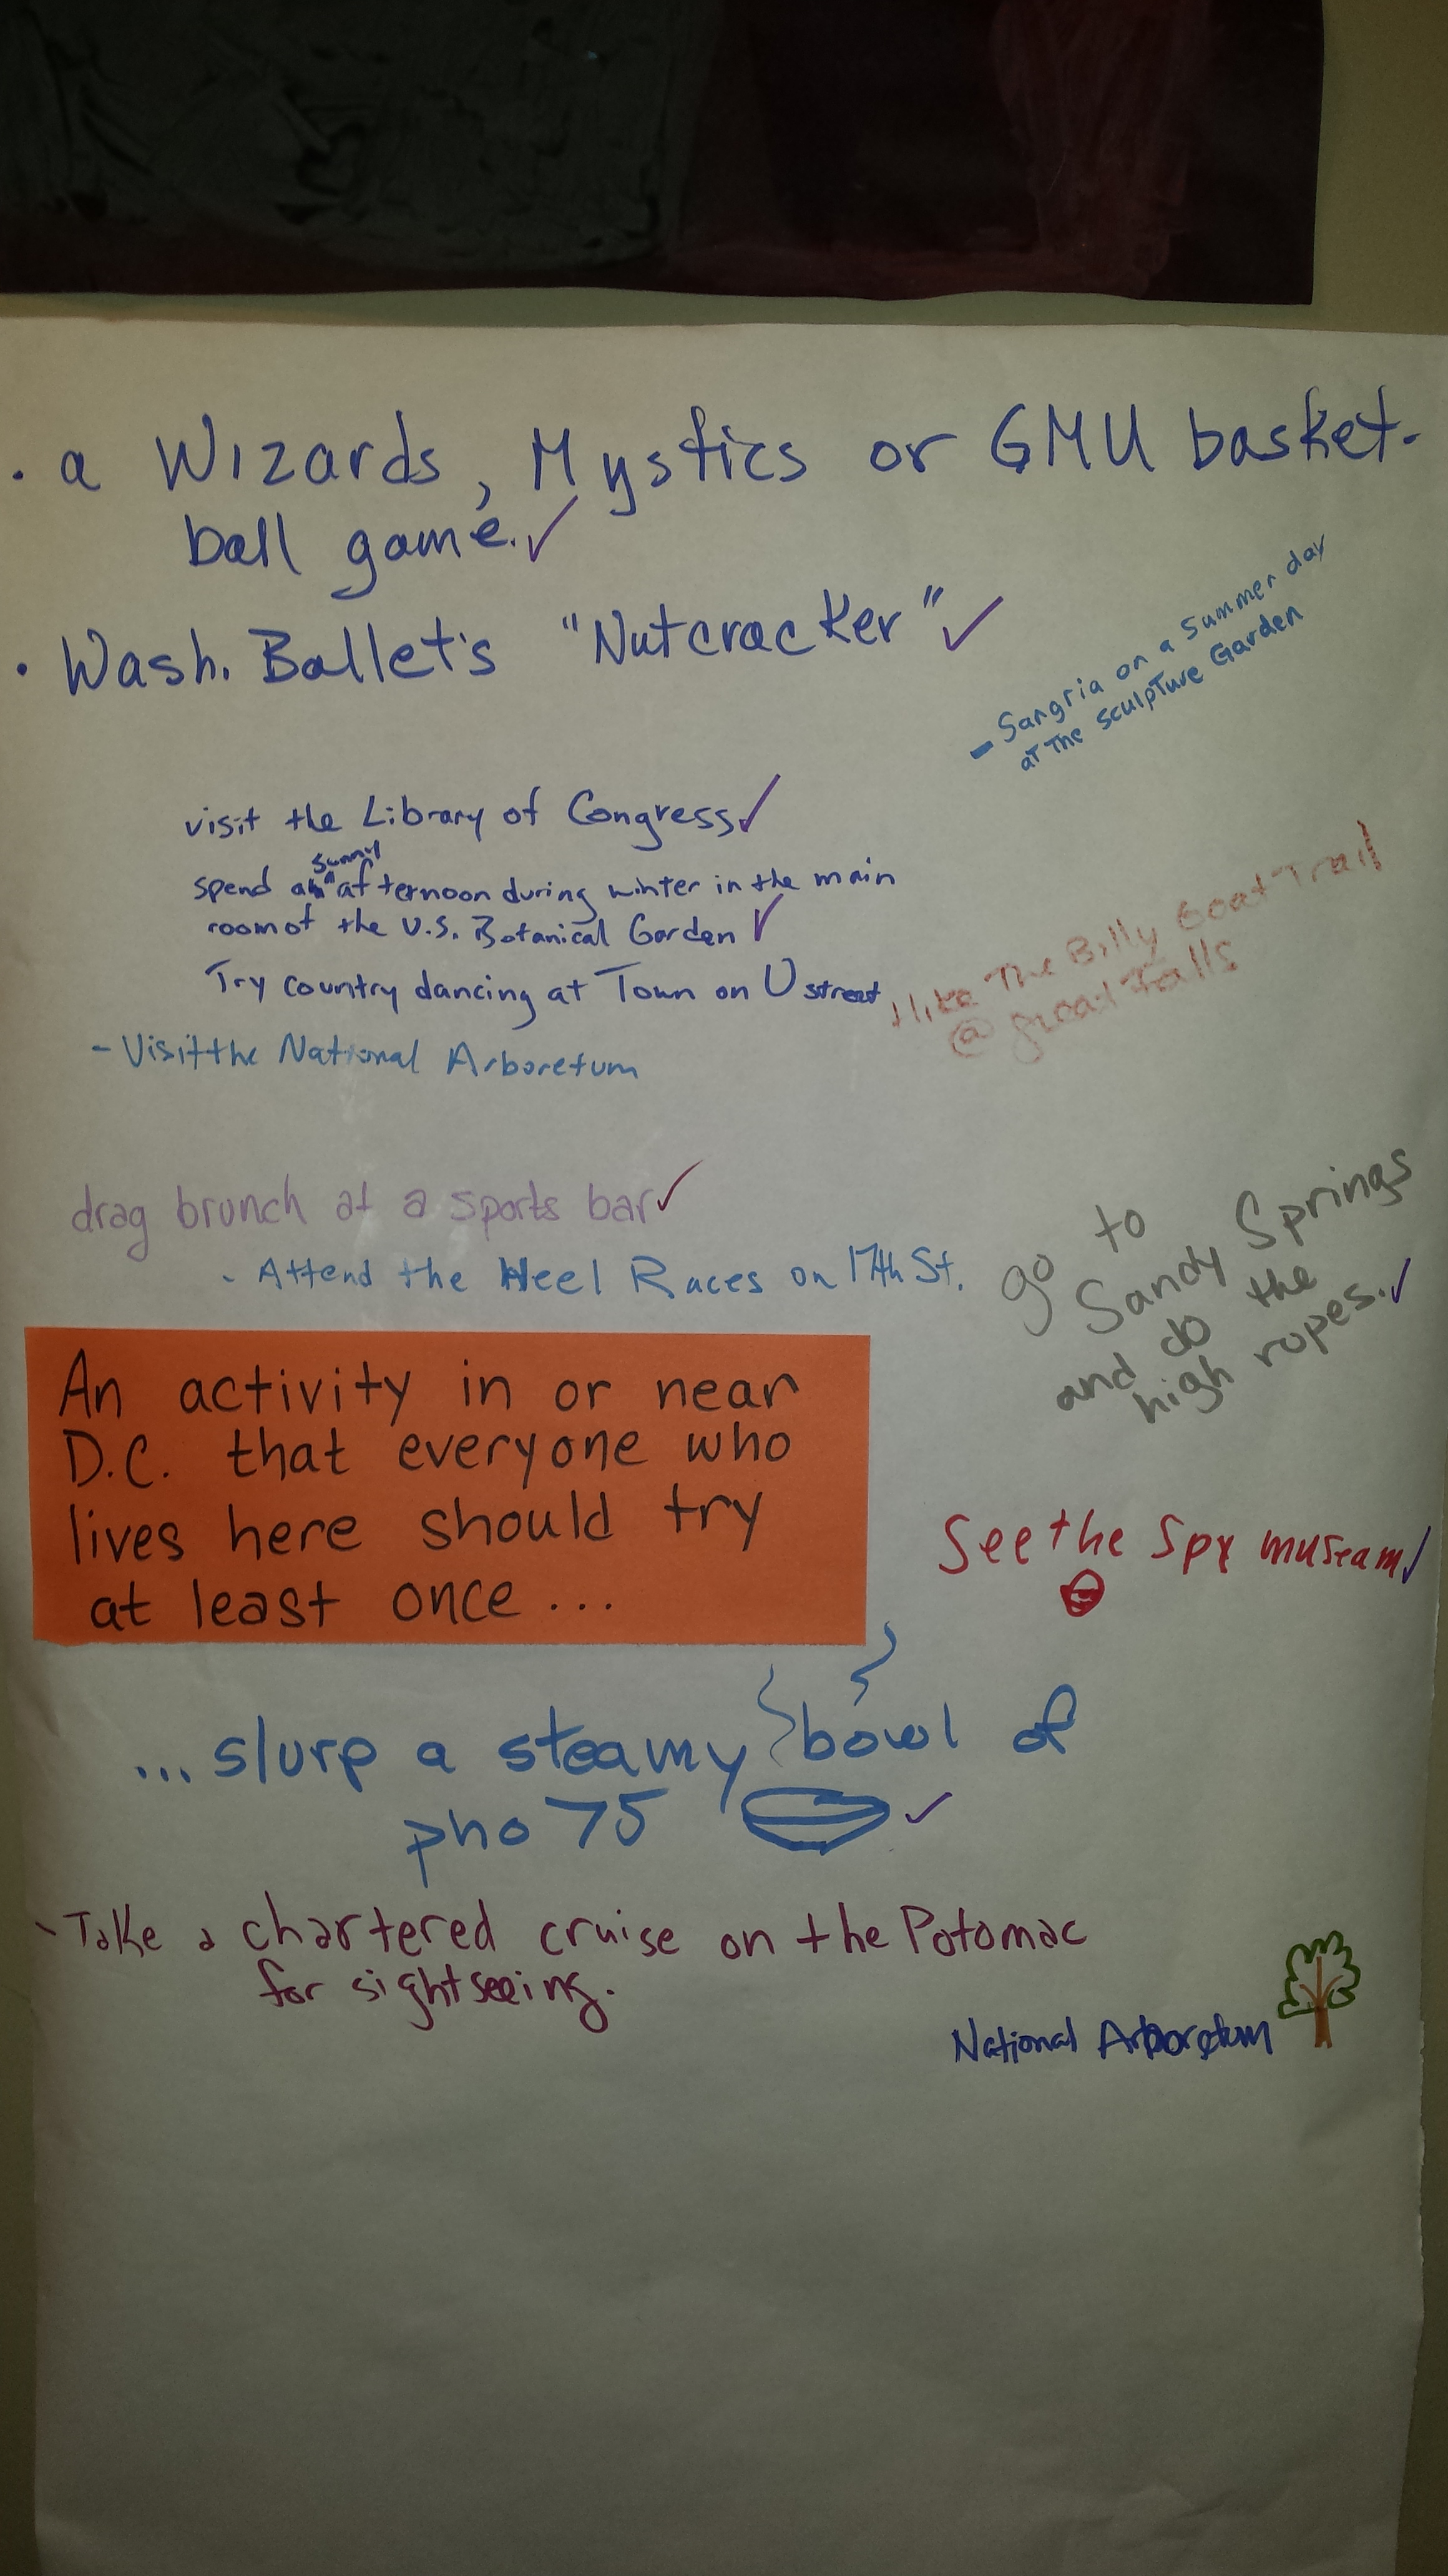 . a Wizards, Mystics or GMU basket-
ball game. ✓
. Wash. Ballet's "Nutcracker" ✓
- Sangria on a Summer day
at the Sculpture Garden
visit the Library of Congress ✓
spend a sunny afternoon during winter in the main
room of the U.S. Botanical Garden ✓
Try country dancing at Town on U street
I like The Billy Goat Trail
@ great Falls
- Visit the National Arboretum
drag brunch at a sports bar ✓
- Attend the Heel Races on 17th St.
go to
Sandy Springs
and do the
high ropes. ✓
An activity in or near
D.C. that everyone who
lives here should try
at least once ...
See the Spy museam ✓
... slurp a steamy bowl of
pho 75 ✓
- Take a chartered cruise on the Potomac
for sightseeing.
National Arboretum